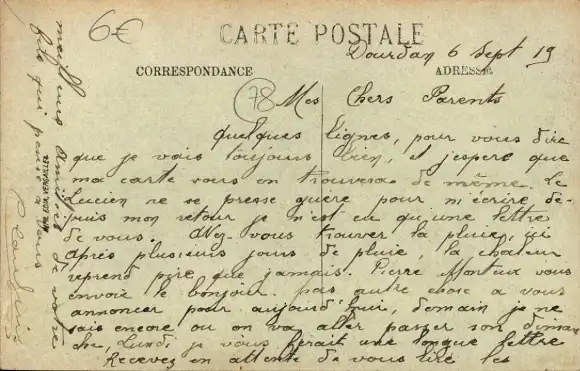 6€
CARTE POSTALE
Dourdan 6 Sept 19
CORRESPONDANCE
ADRESSE
78
Mes Chers Parents
quelques lignes, pour vous dire
que je vais toujours bien, et j'espère que
ma carte vous en trouvera de même. Le
Lucien ne se presse guère pour m'écrire de-
puis mon retour je n'est eu qu'une lettre
de vous. Avez-vous trouver la pluie, ici
Après plusieurs jours de pluie, la chaleur
reprend pire que jamais. Pierre vous
envoie le bonjour. pas autre chose a vous
annoncer pour aujourd'hui, demain je ne
sais encore ou on va aller passer son diman
che, Lundi je vous ferait une longue lettre
Recevez en attente de vous lire les
meilleurs amitiés de votre
fils qui pense a vous